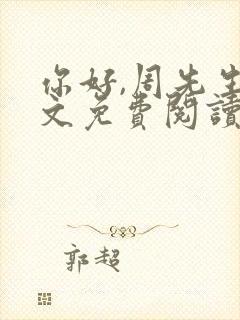 你好,周先生
文免費閱讀
郭超